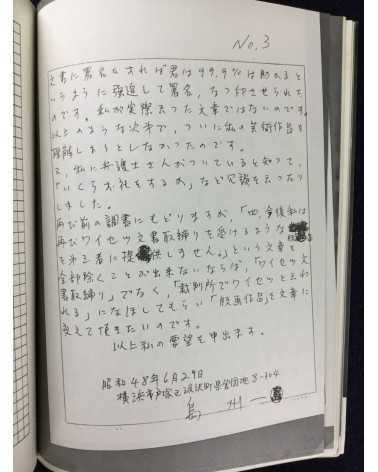 No.3
文書に署名さすれば君は99.9%は助かると
いうように強迫して署名、なつ印させられた
のです。私が実際云った文章ではないのです。
以上のような次才で、ついに私の芸術作品を
理解しようとしなかったのです。
又、私に弁護士さんがついていると知って、
「いくらお礼をするか」など冗談を云ったり
しました。
再び前の調書にもどりますが、「四、今後私は
再びワイセツ文書取締りを受けるような
を第三者に提供しません。」という文章を
全部除くことが出来ないならば、「ワイセツ文
書取締り」でなく、「裁判所でワイセツと云わ
れる」になほしてもらい「版画作品」と文章に
変えて頂きたいのです。
以上私の要望を申出ます。
昭和48年6月29日
横浜市戸塚区汲沢町県営団地8-304
島 州一